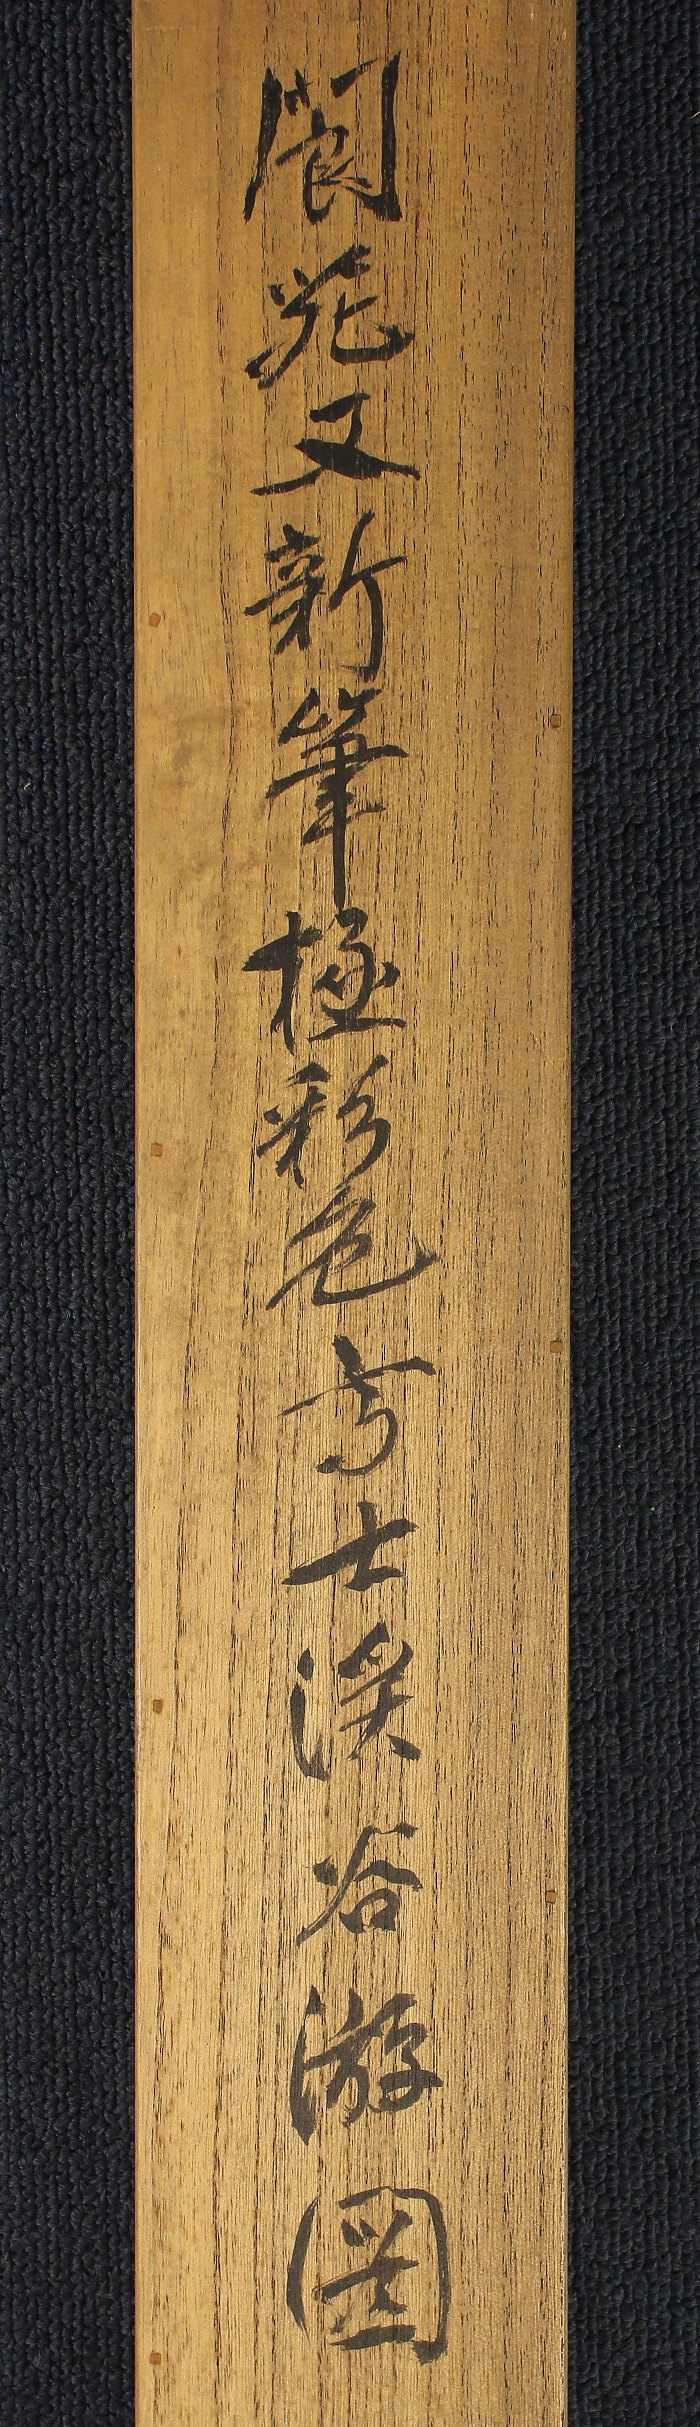 閬苑又新筆極彩色高士渓谷游圖